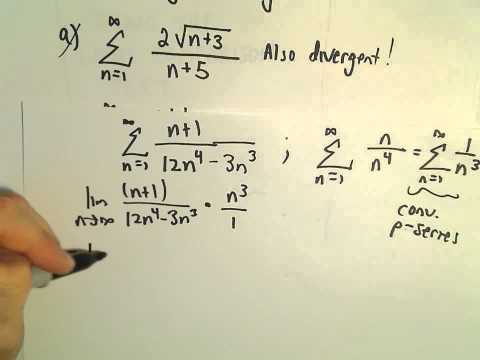 a) ∞∑n=1 2√(n+3) / (n+5) Also divergent!
∞∑n=1 (n+1) / (12n⁴-3n³) ; ∞∑n=1 n/n⁴ = ∞∑n=1 1/n³
lim n→∞ (n+1) / (12n⁴-3n³) • n³/1
conv.
p-series